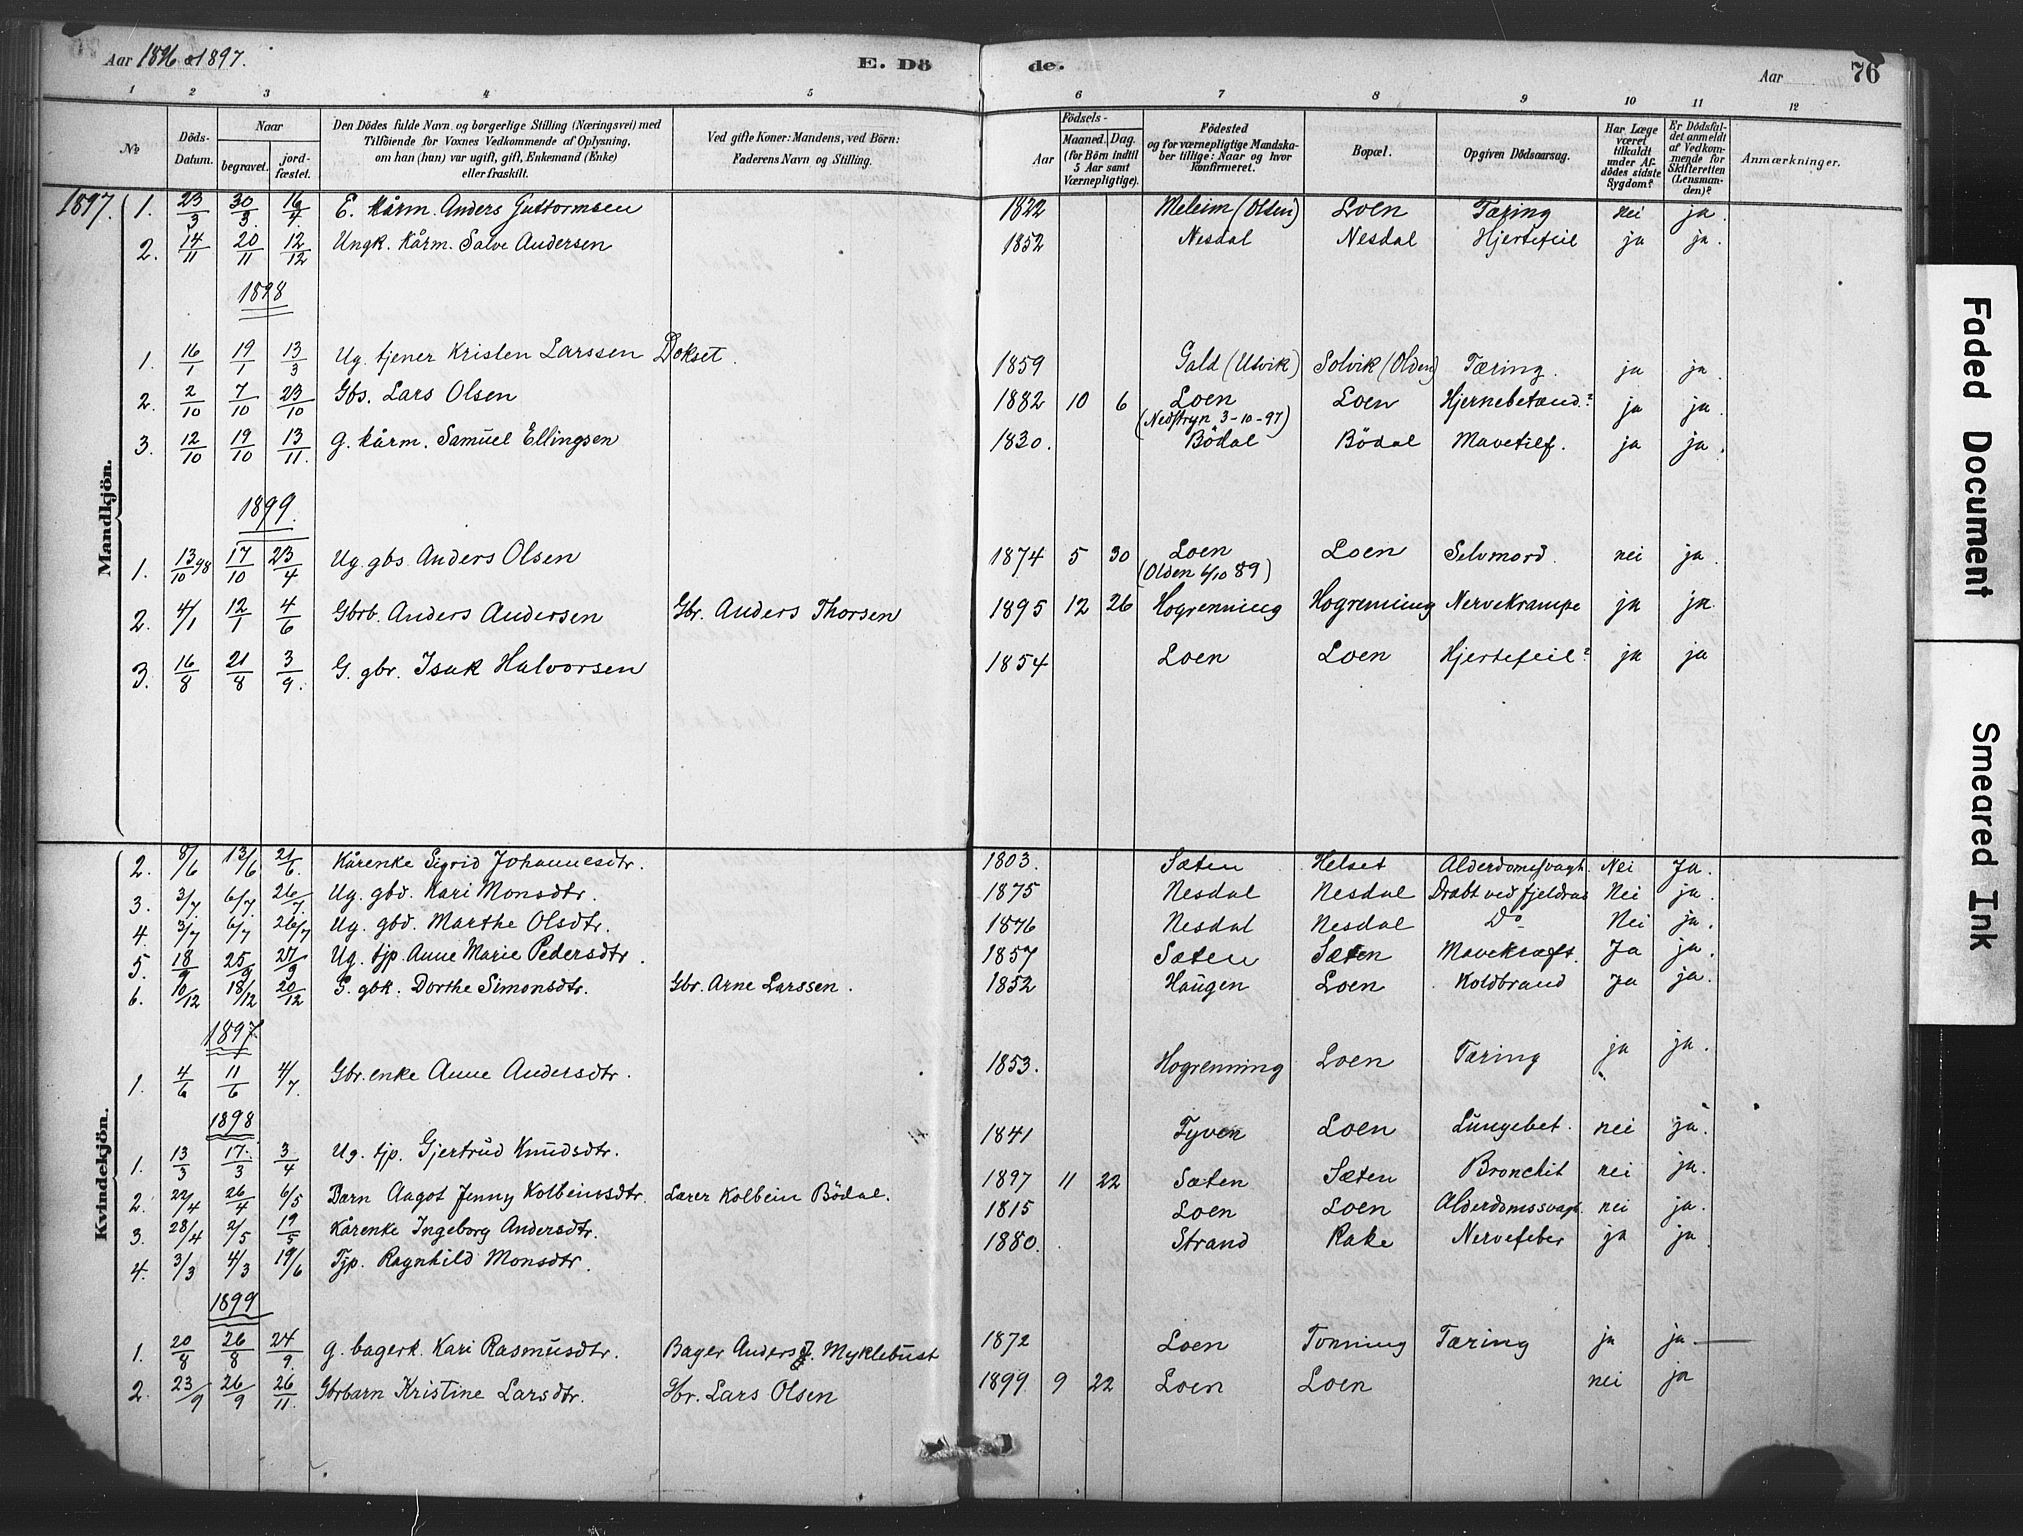 Aar 1896 & 1897.
E. Dö
de.
Aar
76
1 2 3 4 5 6 7 8 9 10 11 12
No
Döds-Datum.
Naar
begravet.
jord-fæstet.
Den Dödes fulde Navn og borgerlige Stilling (Næringsvei) med
Tilföiende for Voxnes Vedkommende af Oplysning,
om han (hun) var ugift, gift, Enkemand (Enke)
eller fraskilt.
Ved gifte Koner: Mandens, ved Börn:
Faderens Navn og Stilling.
Födsels-
Aar
Maaned. Dag.
(for Börn indtil
5 Aar samt
Værnepligtige).
Födested
og for værnepligtige Mandska-
ber tillige: Naar og hvor
konfirmeret.
Bopæl.
Opgiven Dödsaarsag.
Har Læge
været
tilkaldt
under Af-
dödes sidste
Sygdom?
Er Dödsfal-
det anmeldt
af Vedkom-
mende for
Skifteretten
(Lensman-
den)?
Anmærkninger.
Mandkjön.
1897. 1. 23/3 30/3. 16/4. E. kårm. Anders Guttormsen 1822 Meleim (Olden) Loen Tæring nei ja.
2. 14/11 20/11 12/12 Ungk. kårm. Salve Andersen 1852 Nesdal Nesdal Hjertefeil ja ja.
1898
1. 16/1 19/1 13/3 Ug. tjener Kristen Larssen Dokset. 1859 Gald (Utvik) Solvik (Olden) Tæring. ja ja.
2. 2/10 7/10 23/10 Gbs. Lars Olsen 1882 10 6 Loen Loen Hjernebetænd.? ja ja.
(Nedstryn 3-10-97)
3. 12/10 19/10 13/11. g. kårm. Samuel Ellingsen 1830. Bödal Bödal Mavetilf. ja ja.
1899.
1. 13/10 98 17/10 23/4 Ug. gbs. Anders Olsen 1874 5 30 Loen Loen Selvmord. nei ja.
(Olden 6/10 89)
2. 4/1 12/1 4/6 Gbrb. Anders Andersen Gbr. Anders Thorsen 1895 12 26 Hogrenning Hogrenning Nervekrampe ja ja.
3. 16/8 21/8 3/9. G. gbr. Isak Halvorsen 1854 Loen Loen Hjertefeil? ja ja
Kvindekjön.
2. 8/6 13/6 21/6. Kårenke Sigrid Johannesdtr. 1803. Sæten Helset Alderdomssvagh. Nei Ja.
3. 3/7. 6/7. 26/7. Ug. gbd. Kari Monsdtr. 1875 Nesdal Nesdal Dræbt ved fjeldras Nei ja.
4. 3/7 6/7 26/7 Ug. gbd. Marthe Olsdtr. 1876 Nesdal Nesdal Do Nei ja.
5. 18/9 25/9 27/9 Ug. tjp. Anne Marie Pedersdtr. 1857 Sæten Sæten Mavekræft. Ja ja.
6. 10/12 18/12 20/12 G. gbk. Dorthe Simonsdtr. Gbr. Arne Larssen. 1852 Haugen Loen Koldbrand Ja ja.
1897
1. 4/6 11/6 4/7. Gbr. enke Anne Andersdtr. 1853. Hogrenning Loen Tæring ja ja.
1898
1. 13/3 17/3 3/4 Ug. tjp. Gjertrud Knudsdtr. 1841 Tyven Loen Lungebet. nei ja.
2. 22/4 26/4 6/5 Barn Aagot Jenny Kolbeinsdtr. Lærer Kolbein Bödal. 1897 11 22 Sæten Sæten Bronchit nei ja.
3. 28/4 2/5 19/5 Kårenke Ingeborg Andersdtr. 1815 Loen Loen Alderdomssvagh. nei ja.
4. 3/3 4/3 19/6 Tjp. Ragnhild Monsdtr. 1880. Strand Rake Nervefeber ja ja.
1899
1. 20/8 26/8 24/9. g. bagerk. Kari Rasmusdtr. Bager Anders J. Myklebust 1872 Loen Tonning Tæring ja ja.
2. 23/9 26/9 26/11. Gbrbarn Kristine Larsdtr. Gbr. Lars Olsen 1899 9 22 Loen Loen nei ja
Faded Document
Smeared Ink